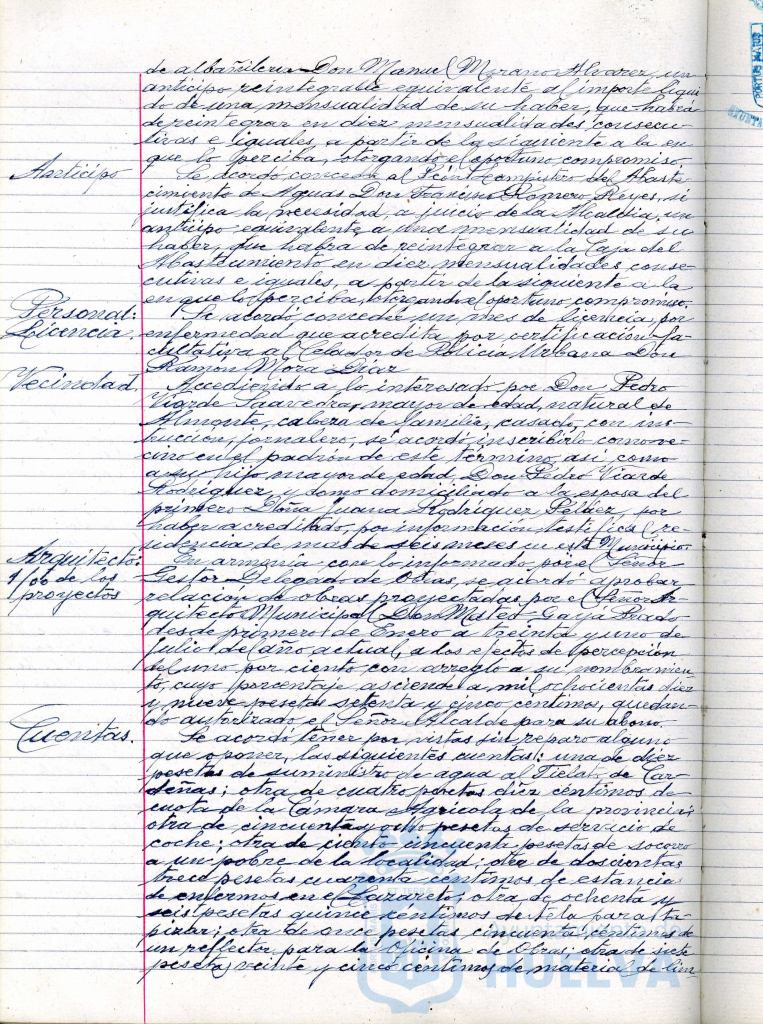 de albañileria Don Manuel Morano Alvarez, un
anticipo reintegrable equivalente al importe liqui
do de una mensualidad de su haber, que habrá
de reintegrar en diez mensualidades consecu
tivas e iguales, a partir de la siguiente a la en
que lo perciba, otorgando el oportuno compromiso.
Anticipo
Se acordó conceder al Peón del Abaste
cimiento de Aguas Don Francisco Romero Reyes, si
justifica la necesidad, a juicio de la Alcaldia, un
anticipo equivalente a una mensualidad de su
haber, que habrá de reintegrar a la Caja del
Abastecimiento en diez mensualidades conse-
cutivas e iguales, a partir de la siguiente a la
en que lo perciba, otorgando el oportuno compromiso.
Personal:
Licencia.
Se acordó conceder un mes de licencia por
enfermedad que acredita por certificación fa-
cultativa al Celador de Policia Urbana Don
Ramon Mora Diaz
Vecindad.
Accediendo a lo interesado por Don Pedro
Viarde Saavedra, mayor de edad, natural de
Almonte, cabeza de familia, casado, con ins-
truccion, jornalero, se acordó inscribirle como ve-
cino en el padrón de este término, asi como
a su hijo mayor de edad Don Pedro Viarde
Rodriguez y como domiciliado a la esposa del
primero Doña Juana Rodriguez Peláez, por
haber acreditado, por información testifical, re-
sidencia de mas de seis meses en este Municipio.
Arquitecto:
1/00 de los
proyectos
En armonia con lo informado por el Señor
Gestor Delegado de Obras, se acordó aprobar
relación de obras proyectadas por el Señor Ar-
quitecto Municipal Don Mateo Gayá Prado
desde primero de Enero a treinta y uno de
Julio del año actual, a los efectos de percepción
del uno por ciento, con arreglo a su nombramien-
to, cuyo porcentaje asciende a mil ochocientas diez
y nueve pesetas setenta y cinco centimos, quedan-
do autorizado el Señor Alcalde para su abono.
Cuentas.
Se acordó tener por vistas sin reparo alguno
que oponer, las siguientes cuentas: una de diez
pesetas de suministro de agua al Fielato de Car-
deñas; otra de cuatro pesetas diez céntimos de
cuota de la Cámara Agricola de la provincia;
otra de cincuenta y ocho pesetas de servicio de
coche; otra de ciento cincuenta pesetas de socorro
a un pobre de la localidad; otra de doscientas
trece pesetas cuarenta céntimos de estancias
de enfermos en el Lazareto; otra de ochenta y
seis pesetas quince céntimos de tela para ta-
pizar; otra de once pesetas cincuenta céntimos de
un reflector para la Oficina de Obras; otra de siete
pesetas veinte y cinco céntimos de material de lim-
HUELVA